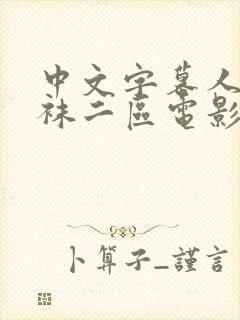 中文字幕人
袜二區電影
卜算子_謹言